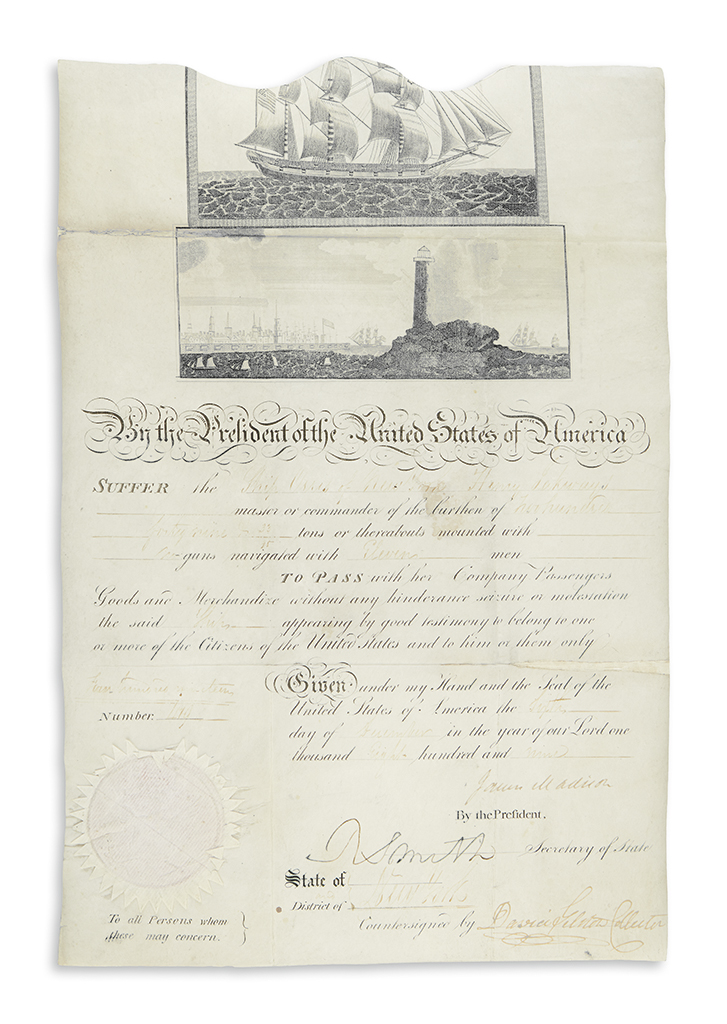 By the President of the United States of America
SUFFER the Ship
master or commander of the burthen of
forty nine tons or thereabouts mounted with
guns navigated with Eleven men
TO PASS with her Company Passengers
Goods and Merchandize without any hinderance seizure or molestation
the said Ship appearing by good testimony to belong to one
or more of the Citizens of the United States and to him or them only
Given under my Hand and the Seal of the
Number
United States of America the
day of December in the year of our Lord one
thousand eight hundred and nine
James Madison
By the President.
R Smith Secretary of State
State of New York
District of New York
Countersigned by David Gelston Collector
To all Persons whom
these may concern.